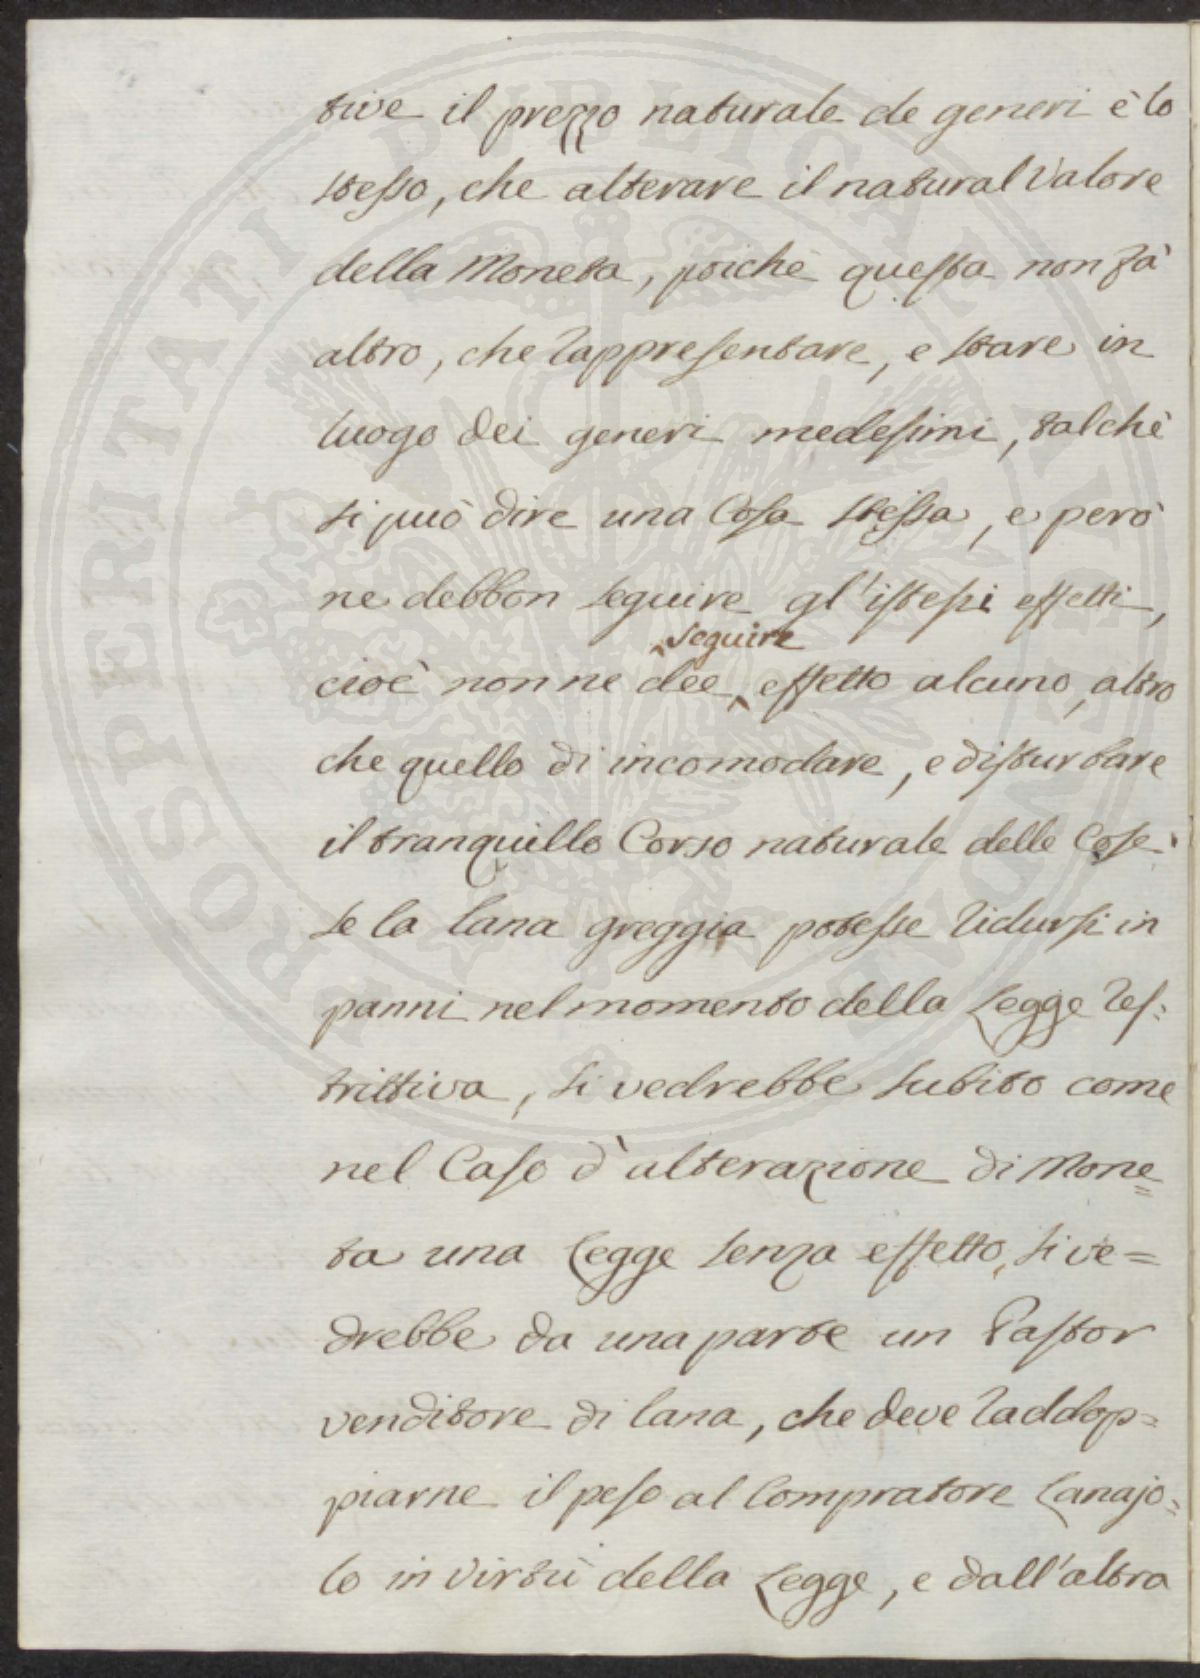 tive il prezzo naturale de generi è lo
stesso, che alterare il natural Valore
della Moneta, poichè questa non fà
altro, che rappresentare, e stare in
luogo dei generi medesimi, talchè
si può dire una Cosa stessa, e però
ne debbon seguire gl'istessi effetti,
seguire
cioè non ne dee effetto alcuno, altro
che quello di incomodare, e disturbare
il tranquillo Corso naturale delle Cose.
Se la lana greggia potesse ridursi in
panni nel momento della Legge res:
trittiva, si vedrebbe subito come
nel Caso d'alterazione di Mone=
ta una Legge senza effetto, si ve=
drebbe da una parte un Pastor
venditore di lana, che deve raddop=
piarne il peso al Compratore Lanajo=
lo in virtù della Legge, e dall'altra
PROSPERITATI PUBLICAE AUGENDAE